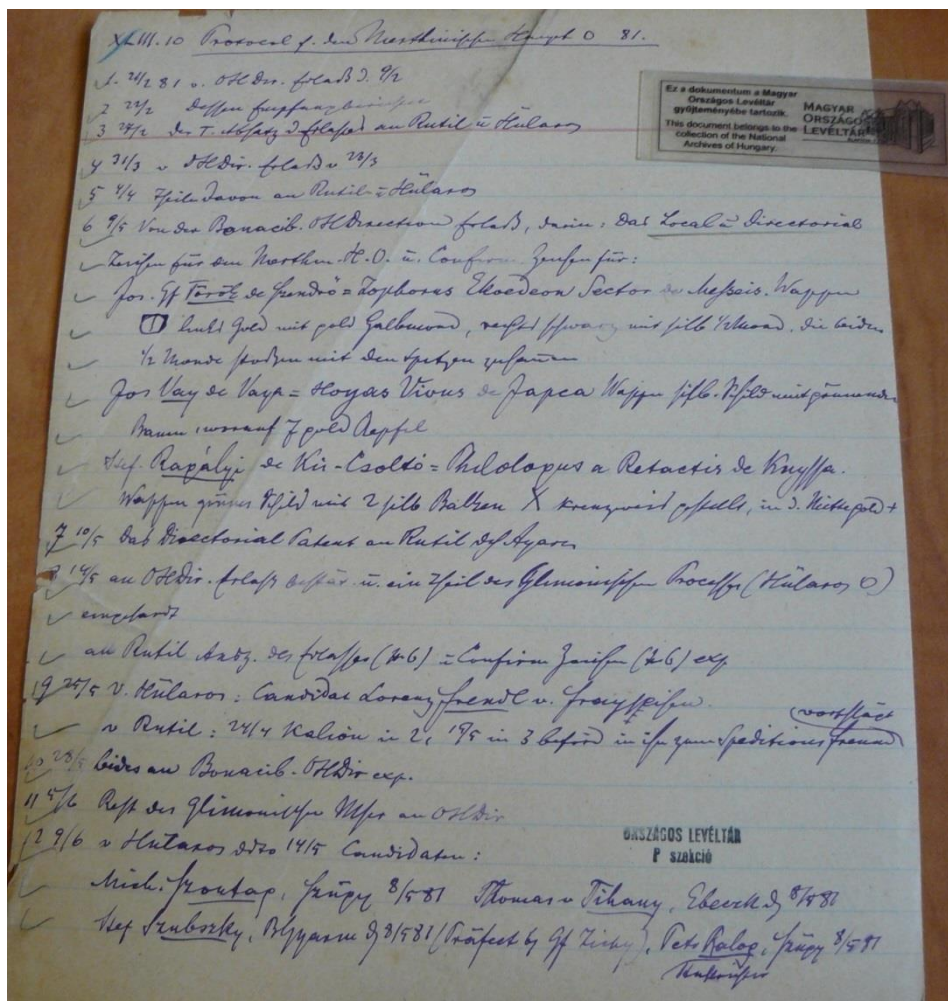 XLIII.10 Protocol f. den Northinischen Haupt O 81.
1. 21/2 81 v. OHDir. Erlaß d. 9/2
2 22/2 dessen
3 24/2 des T. Absatz d Erlasses an Rutil u Hularos
4 31/3 v OHDir. Erlaß v 23/3
5 4/4 Theile davon an Rutil u Hülaros
6 9/5 Von der Bonacib. OHDirection Erlaß, darin: Das Local u directorial
Zeichen für den Northin. H.O. u. Confirm. Zeichen für:
Jos. Gf Török de Szendrö = Zophorus Sector de Messeis. Wappen
links Gold mit gold Halbmond, rechts schwarz mit silb 1/2Mond, die beiden
1/2 Monde stoßen mit den Spitzen zusammen
Jos Vay de Vaya = Hoyas Vivus de Japca Wappen silb. Schild mit grünendem
Baum, worauf 7 gold Aepfel
Stef. Ragályi de Kis-Csoltó = Philolagus a Retactis de Knyssa.
Wappen grünes Schild mit 2 silb Balken X kreuzweis gestellt, in d. Mitte gold +
7 10/5 das Directorial Patent an Rutil
8 14/5 an OHDir. Erlaß u. ein Theil des Glimonischen Processes (Hülaros O)
eingesandt
an Rutil Ausz. des Erlasses (N6) u Confirm Zeichen (N6) exp
19 25/5 V. Hülaros: Candidat Lorenz v.
v Rutil: 24/4 Kalion in 2, 19/5 in 3 beförd in zum Speditionsfreund
28/5 beides an Bonacib. OHDir exp.
11 5/6 Rest des Glimonischen an OHDir
12 9/6 v Hularos ddto 14/5 Candidaten:
Mich. Szontag, Szügy 8/5 81 Thomas v Tihany, Ebeczk d. 8/5 81
Stef Szuborzky, B.Gyarm d. 8/5 81 (Präfect by Gf Zichy), Pet. Balog, Szügy 8/5 81
Ez a dokumentum a Magyar
Országos Levéltár
gyűjteményébe tartozik.
This document belongs to the
collection of the National
Archives of Hungary.
MAGYAR
ORSZÁGOS
LEVÉLTÁR
ORSZÁGOS LEVÉLTÁR
P szekció